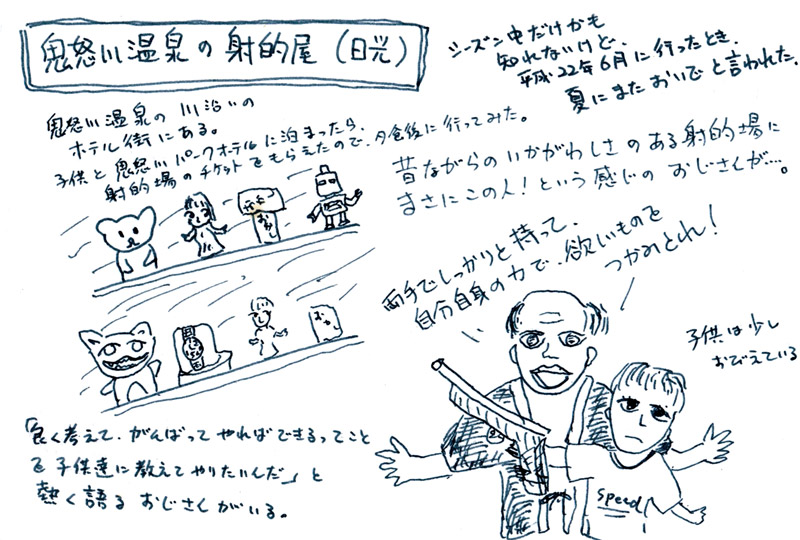 鬼怒川温泉の射的屋（日光）
シーズン中だけかも
知れないけど、
平成22年6月に行ったとき、
夏にまたおいでと言われた。
鬼怒川温泉の川沿いの
ホテル街にある。
子供と鬼怒川パークホテルに泊まったら、
射的場のチケットをもらえたので、夕食後に行ってみた。
昔ながらのいかがわしさのある射的場に
まさにこの人！という感じのおじさんが…。
両手でしっかりと持って、
自分自身の力で、欲しいものを
つかみとれ！
子供は少し
おびえている
「良く考えて、がんばってやればできるってこと
を子供達に教えてやりたいんだ」と
熱く語るおじさんがいる。
speed